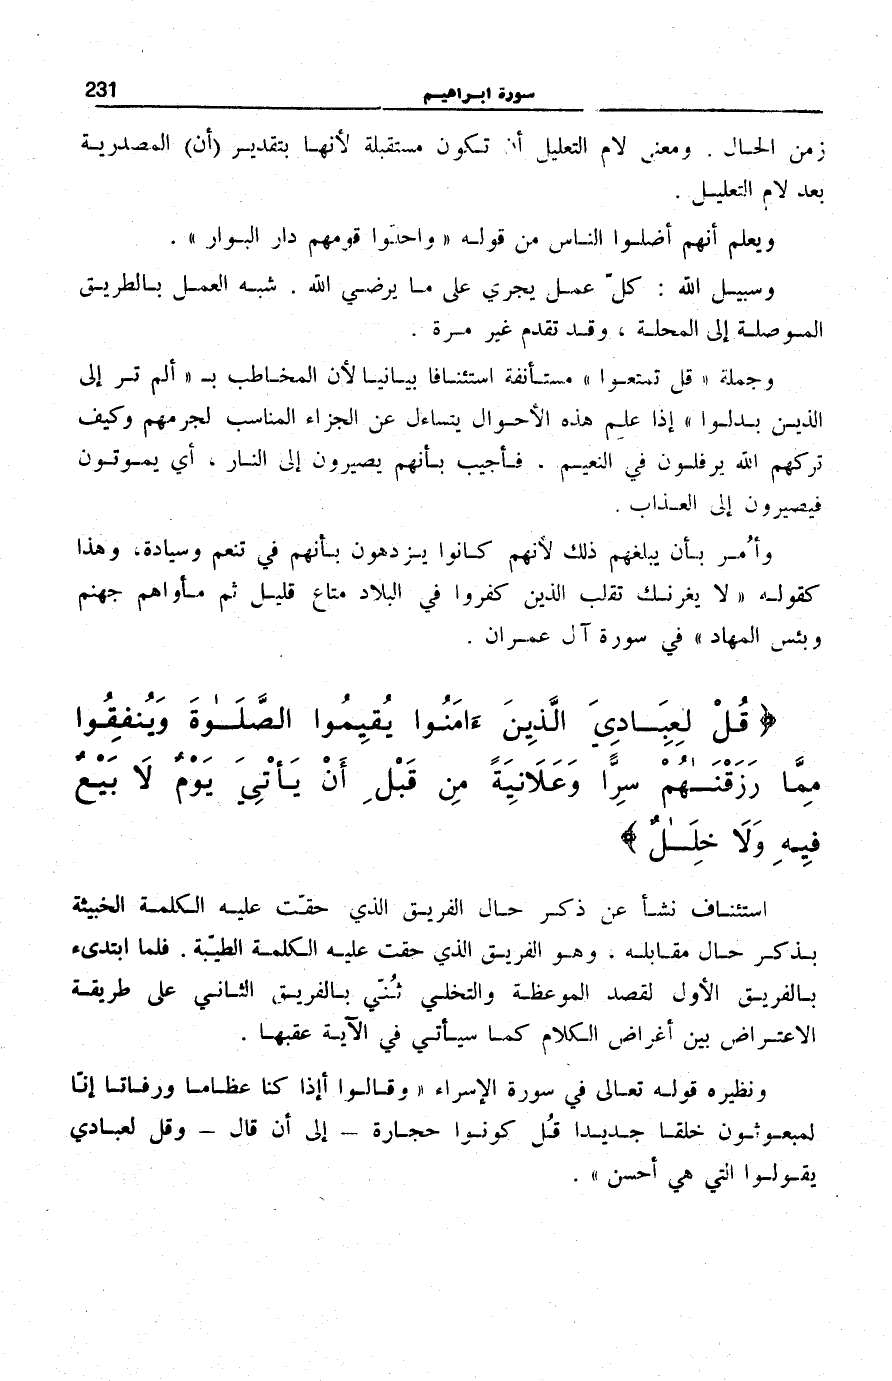 231
سورة ابراهيم
زمن الحال . ومعنى لام التعليل أن تكون مستقبلة لأنها بتقدير (أن) المصدرية
بعد لام التعليل .
ويعلم أنهم أضلوا الناس من قوله « واحلّوا قومهم دار البوار » .
وسبيل الله : كلّ عمل يجري على ما يرضي الله . شبه العمل بالطريق
الموصلة إلى المحلة ، وقد تقدم غير مرة .
وجملة « قل تمتعوا » مستأنفة استئنافا بيانيا لأن المخاطب بـ « ألم تر إلى
الذين بدلوا » إذا علم هذه الأحوال يتساءل عن الجزاء المناسب لجرمهم وكيف
تركهم الله يرفلون في النعيم . فأجيب بأنهم يصيرون إلى النار ، أي يموتون
فيصيرون إلى العذاب .
وأُمر بأن يبلغهم ذلك لأنهم كانوا يزدهون بأنهم في تنعم وسيادة، وهذا
كقوله « لا يغرنك تقلب الذين كفروا في البلاد متاع قليل ثم مأواهم جهنم
وبئس المهاد » في سورة آل عمران .
﴿ قُلْ لِعِبَادِيَ الَّذِينَ ءَامَنُوا يُقِيمُوا الصَّلَوٰةَ وَيُنفِقُوا
مِمَّا رَزَقْنَـٰهُمْ سِرًّا وَعَلَانِيَةً مِن قَبْلِ أَنْ يَأْتِيَ يَوْمٌ لَا بَيْعٌ
فِيهِ وَلَا خِلَـٰلٌ ﴾
استئناف نشأ عن ذكر حال الفريق الذي حقّت عليه الكلمة الخبيثة
بذكر حال مقابله ، وهو الفريق الذي حقت عليه الكلمة الطيّبة . فلما ابتدىء
بالفريق الأول لقصد الموعظة والتخلي ثُنّي بالفريق الثاني على طريقة
الاعتراض بين أغراض الكلام كما سيأتي في الآية عقبها .
ونظيره قوله تعالى في سورة الإسراء « وقالوا أإذا كنا عظاما ورفاتا إنّا
لمبعوثون خلقا جديدا قُل كونوا حجارة – إلى أن قال – وقل لعبادي
يقولوا التي هي أحسن » .